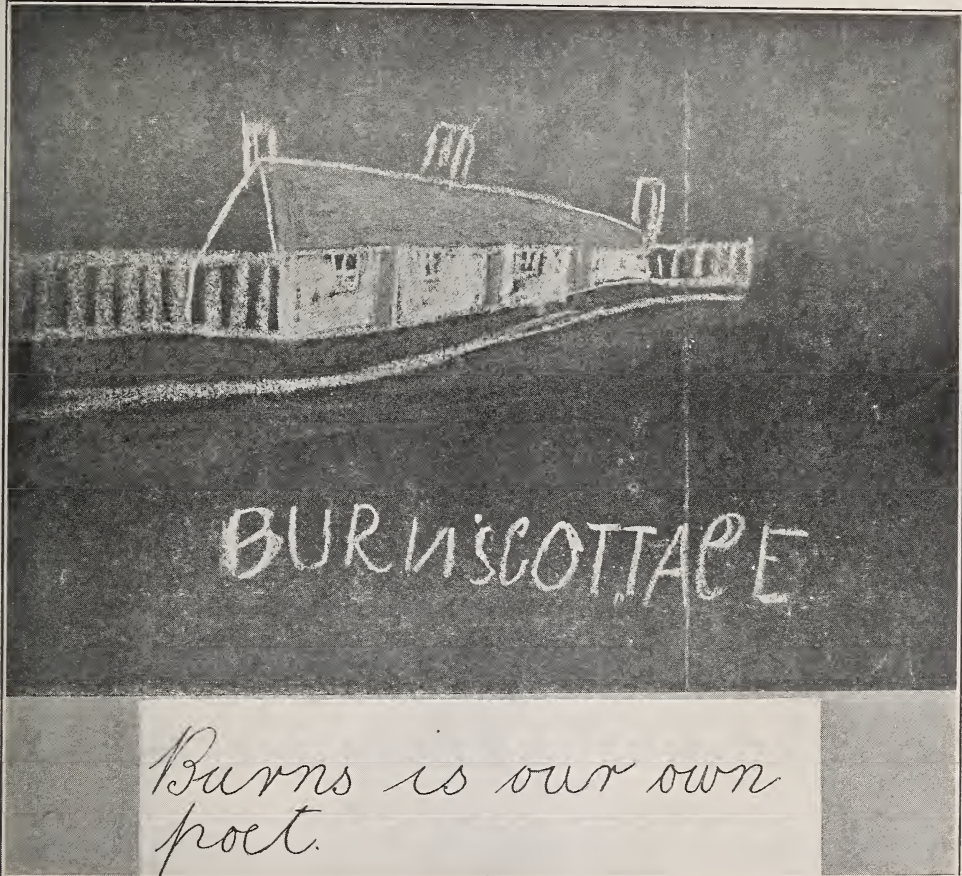 BURN'S COTTAGE
Burns is our own
poet.